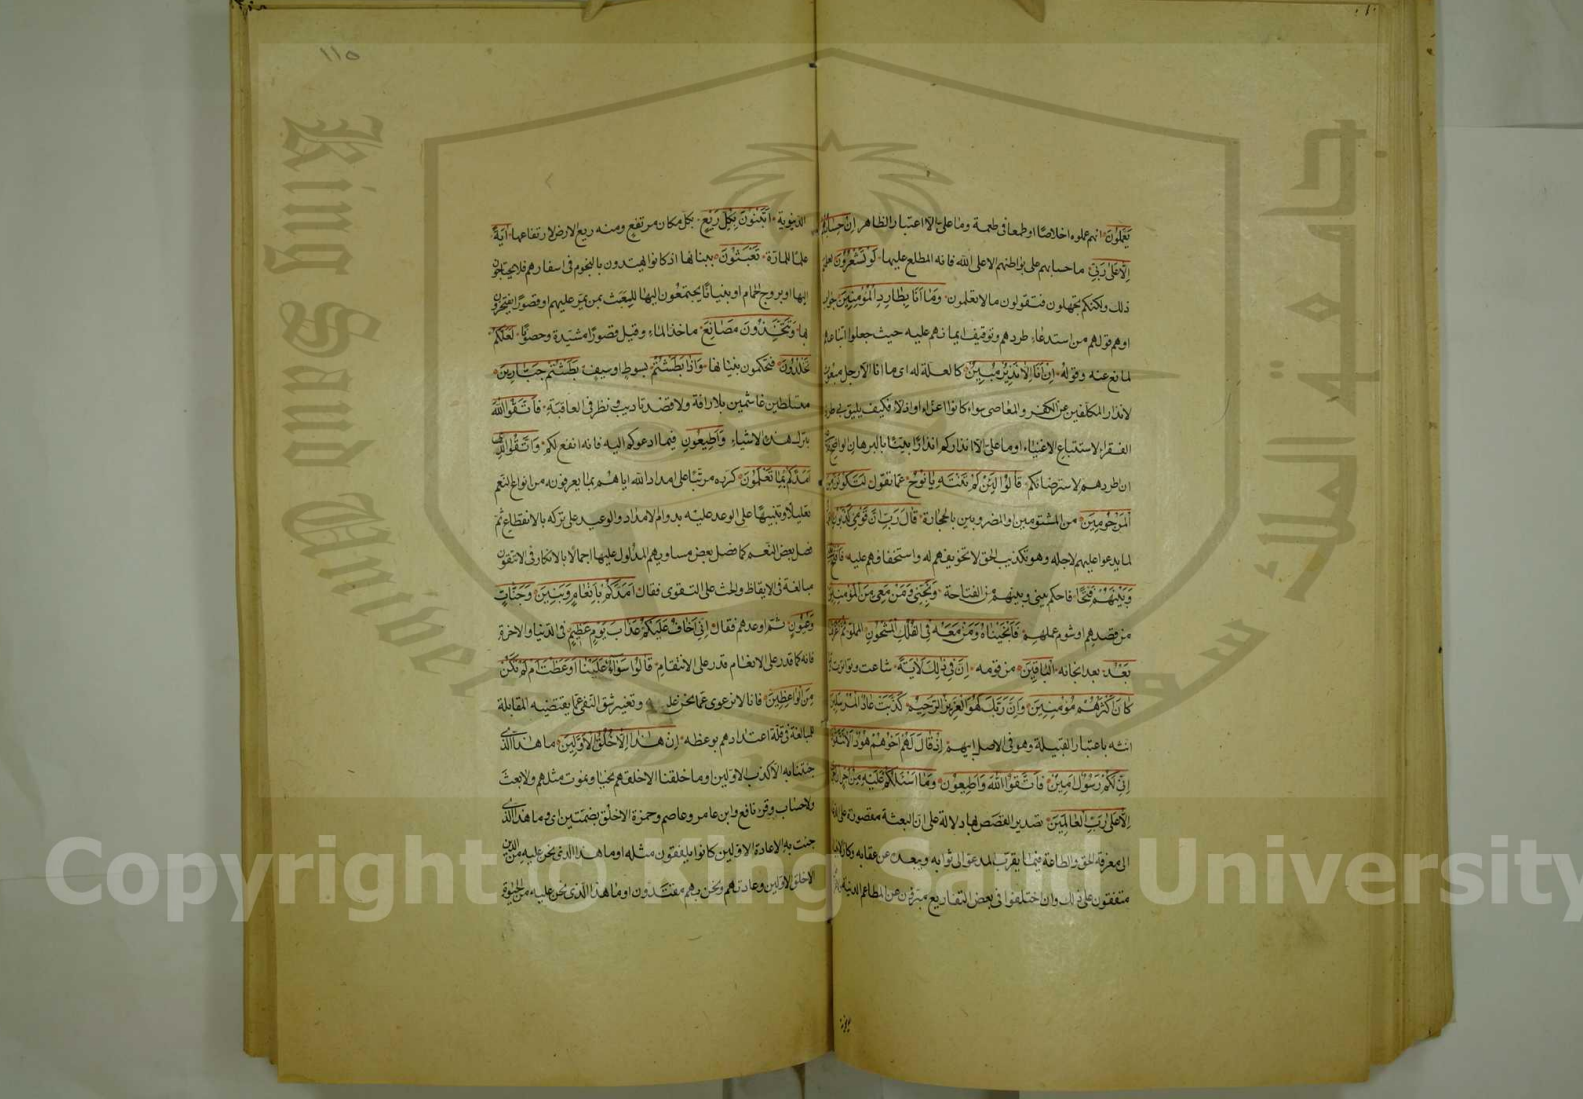 تعملون انهم عملوه اخلاصا او طمعا في طعمة وما علي الا اعتبار الظاهر ان حسابهم
الا على ربي ما حسابهم على بواطنهم الا على الله فانه المطلع عليها لو تشعرون لعلمتم
ذلك ولكنكم تجهلون فتقولون ما لا تعلمون وما انا بطارد المؤمنين جواب
اوهم قولهم من استدعاء طردهم وتوقيف ايمانهم عليه حيث جعلوا اتباعهم
لمانع عنه وقوله ان انا الا نذير مبين كالعلة له اي ما انا الا رجل مبعوث
لانذار المكلفين عن الكفر والمعاصي سواء كانوا اعزاء او اذلاء فكيف يليق بي طرد
الفقراء لاستتباع الاغنياء او ما علي الا انذاركم انذارا بينا بالبرهان الواضح
ان طردهم لاسترضائكم قالوا لئن لم تنته يا نوح عما تقول لتكونن من
المرجومين من المشتومين او المضروبين بالحجارة قال رب ان قومي كذبون
لما يدعوا عليهم لاجله وهو تكذيب الحق لا تخويفهم له واستخفافهم عليه فافتح
وبينهم فتحا فاحكم بيني وبينهم من الفتاحة ونجني ومن معي من المؤمنين
من قصدهم او شوم عملهم فانجيناه ومن معه في الفلك المشحون المملو ثم اغرقنا
بعد بعد انجائه الباقين من قومه ان في ذلك لاية شاعت وتواترت
كان اكثرهم مؤمنين وان ربك لهو العزيز الرحيم كذبت عاد المرسلين
انثه باعتبار القبيلة وهو في الاصل ابيهم اذ قال لهم اخوهم هود الا تتقون
اني لكم رسول امين فاتقوا الله واطيعون وما اسئلكم عليه من اجر ان
الا على رب العالمين تصدير القصص بها دلالة على ان البعثة مقصورة على الدعاء
الى معرفة الحق والطاعة فيما يقرب المدعو الى ثوابه ويبعده عن عقابه وكان الانبياء
متفقون على ذلك وان اختلفوا في بعض التفاريع مبرؤن عن المطامع الدنية
الدنيوية اتبنون بكل ريع بكل مكان مرتفع ومنه ريع الارض لارتفاعها اية
علما للمارة تعبثون ببنائها اذ كانوا يهتدون بالنجوم في اسفارهم فلا يحتاجون
اليها او بروج الحمام او بنيانا يجتمعون اليها للعبث بمن يمر عليهم او قصورا يفتخرون
بها وتتخذون مصانع ماخذ الماء وقيل قصورا مشيدة وحصونا لعلكم
تخلدون فتحكمون بنيانها واذا بطشتم بسوط او سيف بطشتم جبارين
متسلطين غاشمين بلا رافة ولا قصد تاديب ونظر في العاقبة فاتقوا الله
بترك هذه الاشياء واطيعون فيما ادعوكم اليه فانه انفع لكم واتقوا الذي
امدكم بما تعلمون كرره مرتبا على امداد الله اياهم بما يعرفونه من انواع النعم
تعليلا وتنبيها على الوعد عليه بدوام الامداد والوعيد على تركه بالانقطاع ثم
فصل بعض النعم كما فصل بعض مساويهم المدلول عليها اجمالا بالانكار في الا تتقون
مبالغة في الايقاظ والحث على التقوى فقال امدكم بانعام وبنين وجنات
وعيون ثم اوعدهم فقال اني اخاف عليكم عذاب يوم عظيم في الدنيا والاخرة
فانه كما قدر على الانعام قدر على الانتقام قالوا سواء علينا اوعظت ام لم تكن
من الواعظين فانا لا نرعوي عما نحن عليه وتغيير شق النفي عما يقتضيه المقابلة
للمبالغة في قلة اعتدادهم بوعظه ان هذا الا خلق الاولين ما هذا الذي
جئتنا به الا كذب الاولين او ما خلقنا الا خلقهم نحيا ونموت مثلهم ولا بعث
ولا حساب وقرء نافع وابن عامر وعاصم وحمزة الا خلق بضمتين اي وما هذا الذي
جئت به الا عادة الاولين كانوا يلفقون مثله او ما هذا الذي نحن عليه من الدين
الا خلق الاولين وعادتهم ونحن بهم مقتدون او ما هذا الذي نحن عليه من الحيوة
١١٥
Copyright © King Saud University
King Saud University
جامعة الملك سعود